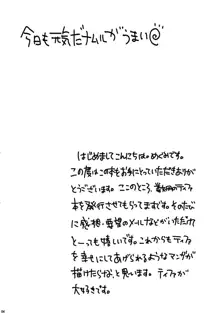 今日も元気だナムルがうまい@
はじめましてこんにちは。めぐみです。
この度はこの本をお手にとっていただきありが
とうございます。ここのところ、着物のティファ
本を発行させてもらってますです。そのたび
に感想・要望のメールなどがいただけて
とーっても嬉しいです。これからもティファ
を幸せにしてあげられるようなマンガが
描けたらなぁと思います。ティファが
大好きです。